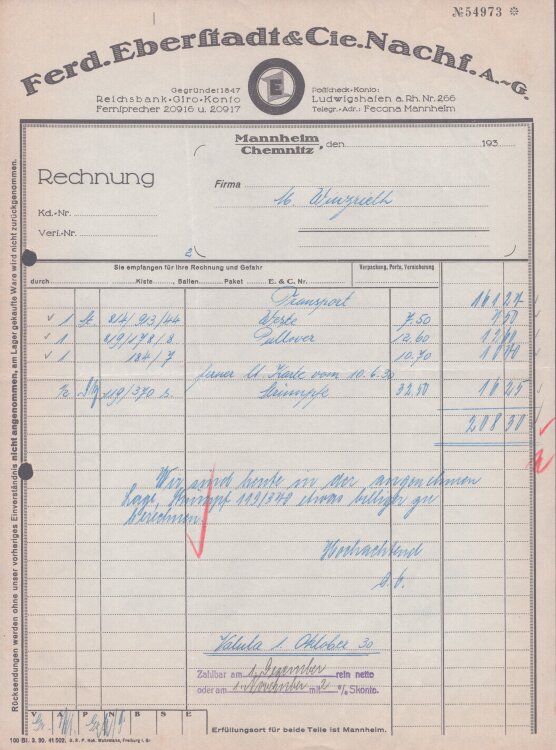 № 54973 ✻
Ferd. Eberstadt & Cie. Nachf. A.-G.
E
Gegründet 1847
Reichsbank-Giro-Konto
Fernsprecher 20916 u. 20917
Postscheck-Konto:
Ludwigshafen a. Rh. Nr. 266
Telegr.-Adr.: Fecona Mannheim
Mannheim
Chemnitz, den 193
Rechnung
Firma
Kd.-Nr.
Verl.-Nr.
2
Sie empfangen für Ihre Rechnung und Gefahr
Verpackung, Porto, Versicherung
durch Kiste Ballen Paket E. & C. Nr.
Transport 161 27
1 St. 814/913/44 Weste 7.50 7 50
1 819/178/3 Pullover 12.60 12 60
1 184/7 10.70 10 70
ferner lt. Karte vom 10.6.30
1/2 Dtz 119/370 s. Strümpfe 32.50 16 25
208 30
Wir sind heute in der angenehmen
Lage, Strumpf 119/370 etwas billiger zu
berechnen
Hochachtend
Valuta 1. Oktober 30
Zahlbar am 1. Dezember rein netto
oder am 1. November mit 2 % Skonto.
V A P B S E
Erfüllungsort für beide Teile ist Mannheim.
100 Bl. 3. 30. 41502. D. R. P. Hch. Muhrmann, Freiburg i. Br
Rücksendungen werden ohne unser vorheriges Einverständnis nicht angenommen, am Lager gekaufte Ware wird nicht zurückgenommen.